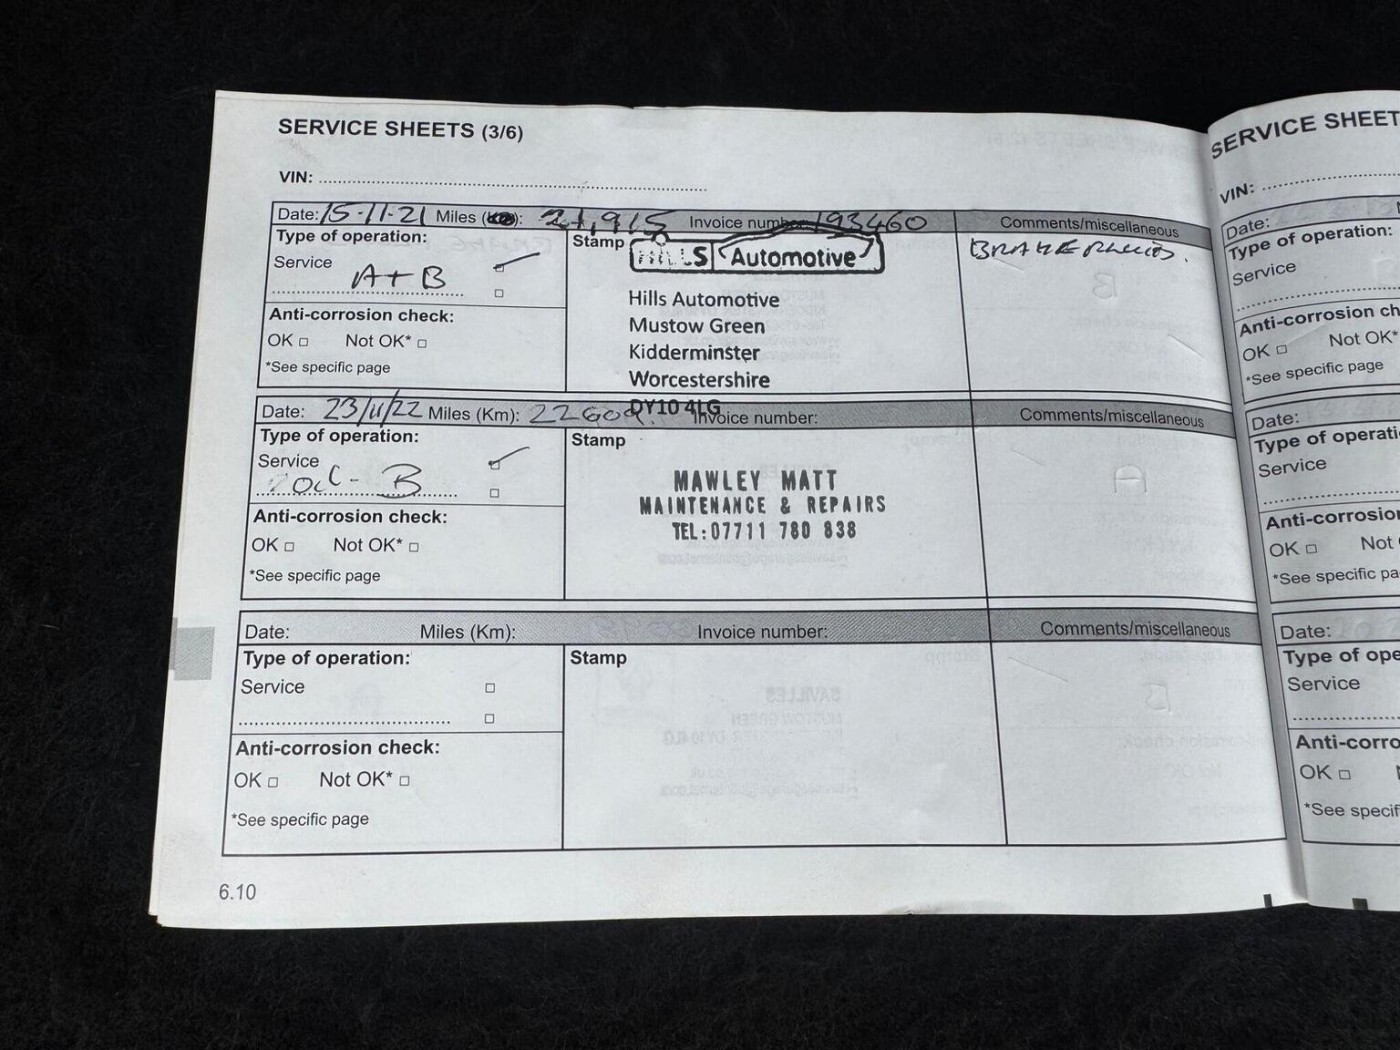 SERVICE SHEETS (3/6)
VIN:
Date: 15-11-21 Miles (Km): 21,915 Invoice number: 193460 Comments/miscellaneous
Type of operation:
Service
A+B
Stamp
HILLS Automotive
Hills Automotive
Mustow Green
Kidderminster
Worcestershire
DY10 4LG
BRAKE FLUID.
Anti-corrosion check:
OK □ Not OK* □
*See specific page
Date: 23/11/22 Miles (Km): 22609. Invoice number: Comments/miscellaneous
Type of operation:
Service
OIL - B
Stamp
MAWLEY MATT
MAINTENANCE & REPAIRS
TEL:07711 780 838
Anti-corrosion check:
OK □ Not OK* □
*See specific page
Date: Miles (Km): Invoice number: Comments/miscellaneous
Type of operation:
Service □
□
Stamp
Anti-corrosion check:
OK □ Not OK* □
*See specific page
6.10
SERVICE SHEET
VIN:
Date:
Type of operation:
Service
Anti-corrosion ch
OK □ Not OK*
*See specific page
Date:
Type of operati
Service
Anti-corrosion
OK □ Not
*See specific pa
Date:
Type of ope
Service
Anti-corro
OK □
*See specif